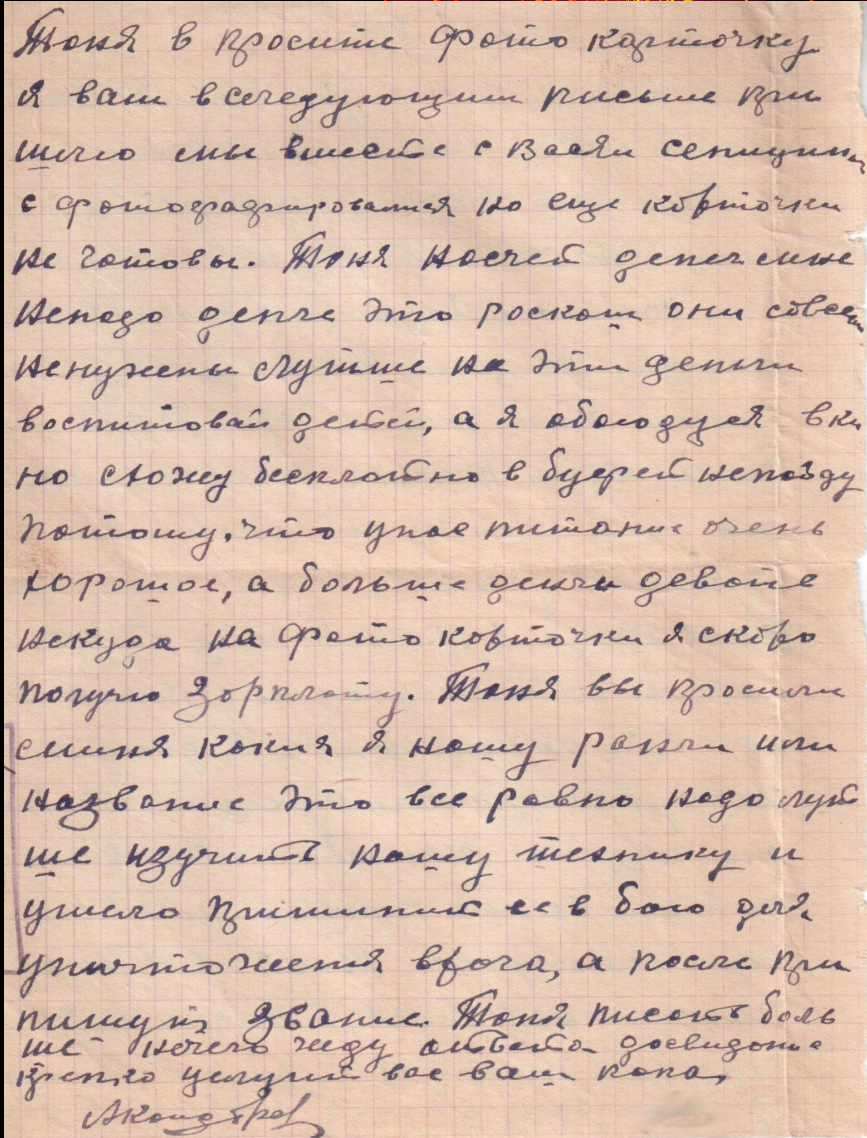 Тоня в просите фото карточку
я вам в следующим письме при
шлю мы вместе с Васяй
с фотографировалися но еще корточки
не готовы. Тоня насчет денег мне
ненадо денги это роскош они совсем
ненужены лутьше на эти деньги
воспитовай детей, а я обоюдуся в ки
но схожу бесплатно в буфет непойду
потому, что у нас питание очень
хорошое, а больше денги девать
некуда на фото корточки я скоро
получю зорплату. Тоня вы просили
миня какия я ношу ранги или
название это все равно надо лут
ше изучить нашу технику и
умело применить ее в бою для
уничтожения врага, а после при
пишут звание. Тоня писать боль
ше нечего жду ответа досвидание
крепко целует вас ваш папа